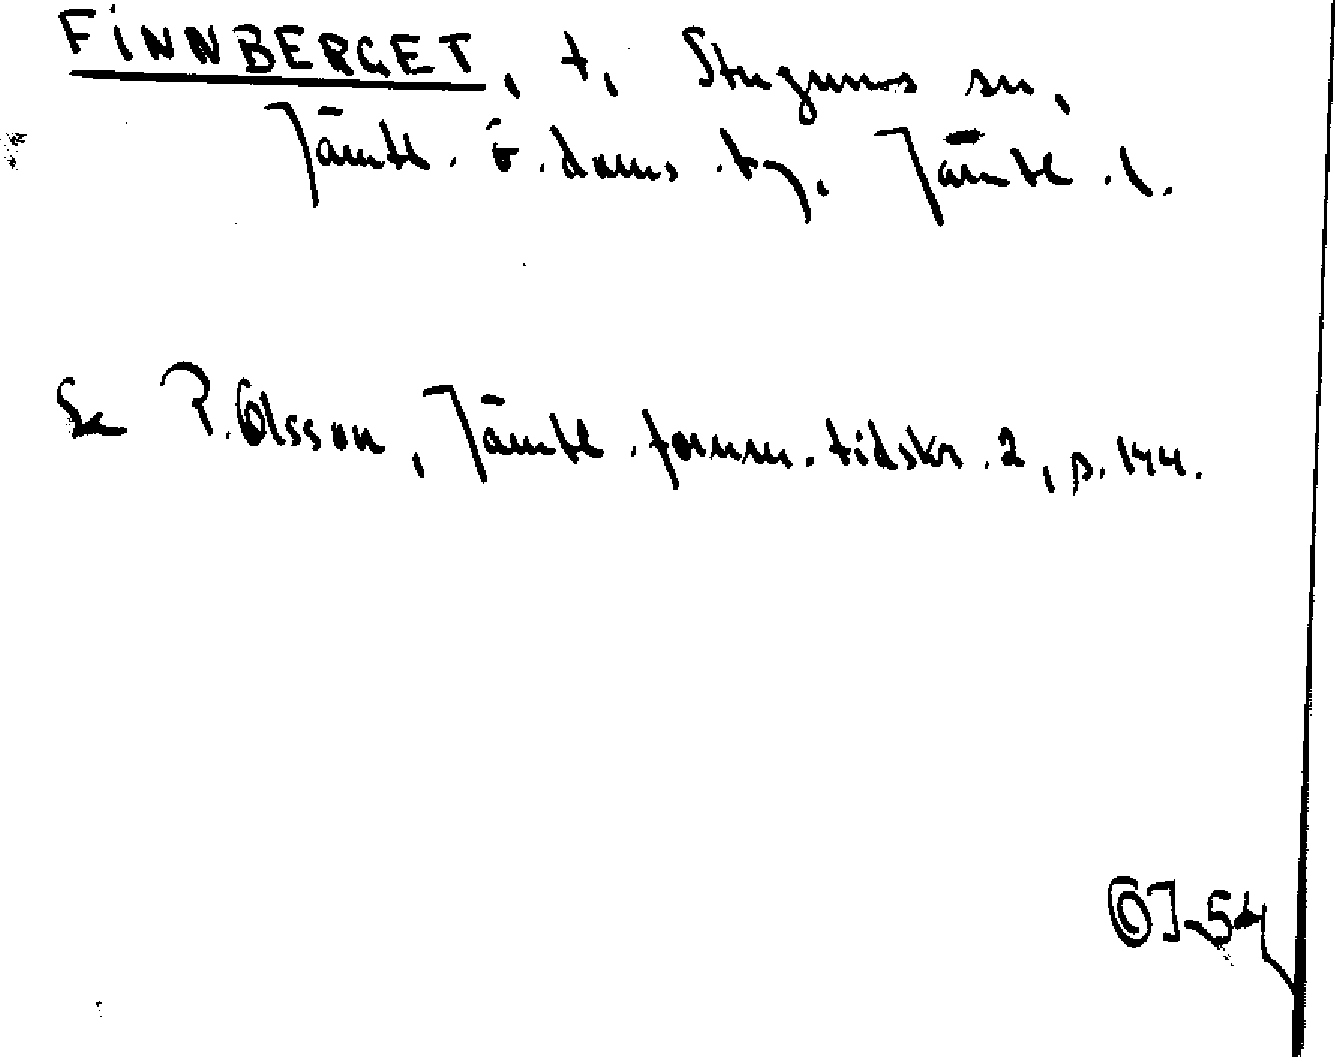 FINNBERGET, t, Stuguns sn,
Jämtl. ö. doms. tg, Jämtl. l.
Se P. Olsson, Jämtl. fornm. tidskr. 2, s. 144.
OJ-54